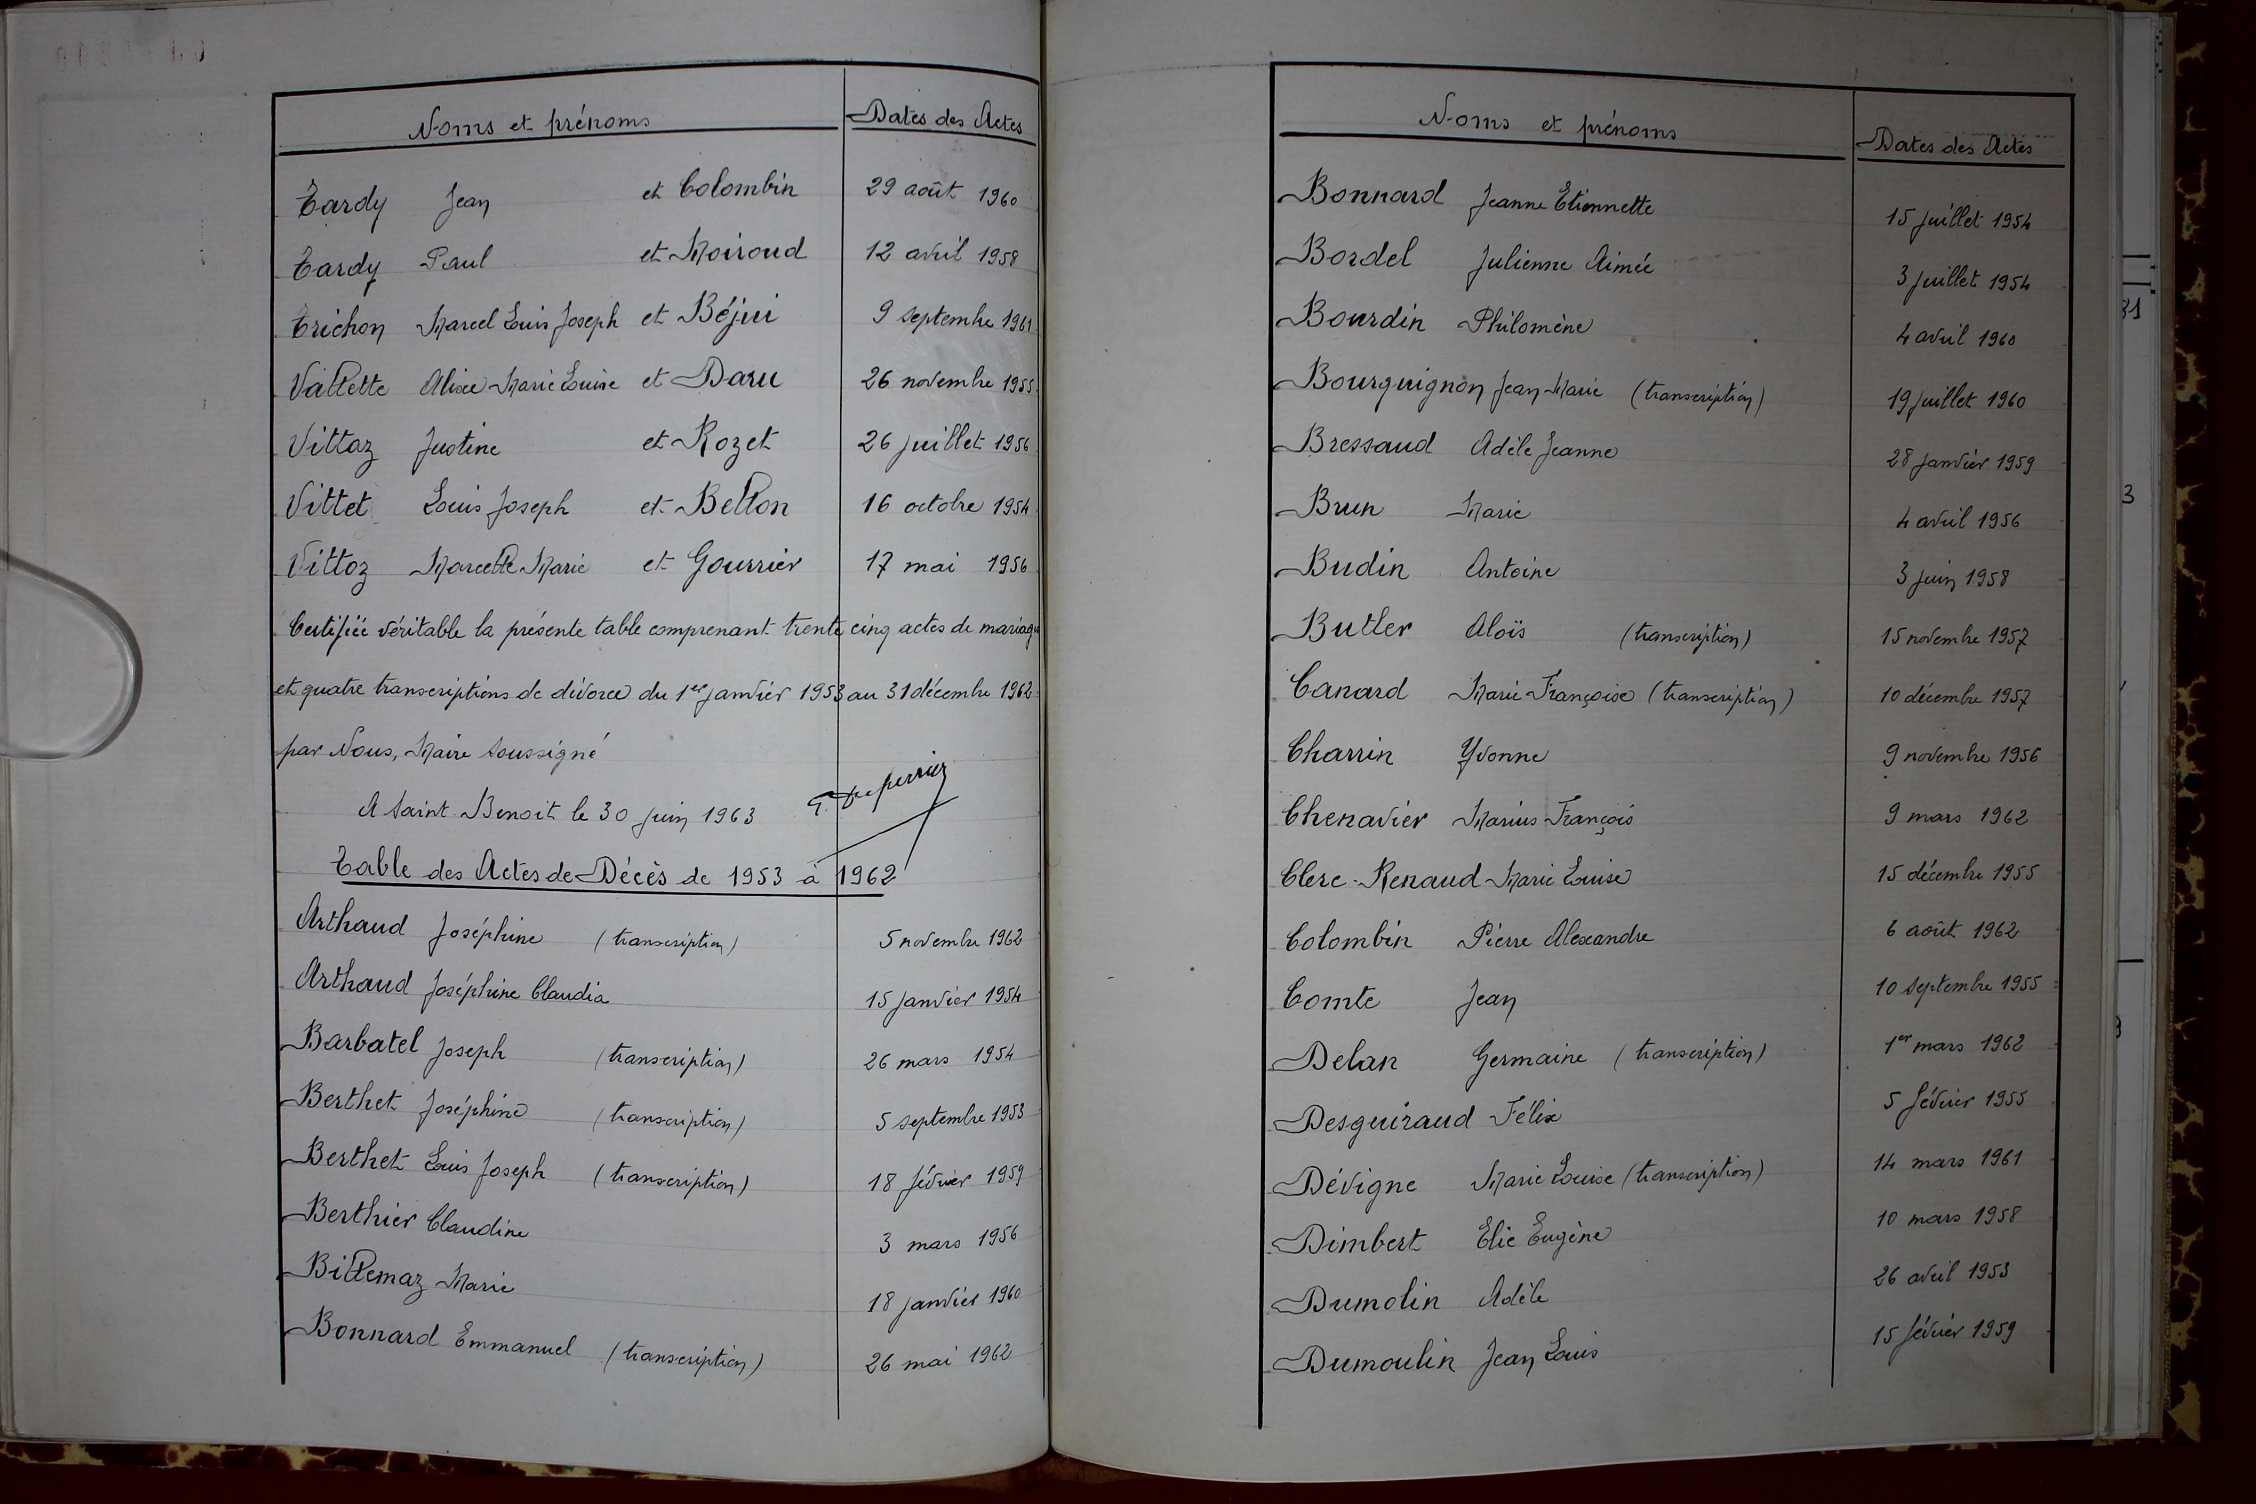 Noms et prénoms Dates des Actes
Tardy Jean et Colombin 29 août 1960
Tardy Paul et Moiroud 12 avril 1958
Trichon Marcel Louis Joseph et Béjui 9 septembre 1961
Vallette Alice Marie Louise et Daru 26 novembre 1955
Vittaz Justine et Rozet 26 juillet 1956
Vittet Louis Joseph et Bellon 16 octobre 1954
Vittoz Marcelle Marie et Gourrier 17 mai 1956
Certifiée véritable la présente table comprenant trente cinq actes de mariage
et quatre transcriptions de divorce du 1er janvier 1953 au 31 décembre 1962
par Nous, Maire soussigné
A Saint Benoit le 30 juin 1963
Table des Actes de Décès de 1953 à 1962
Arthaud Joséphine (transcription) 5 novembre 1962
Arthaud Joséphine Claudia 15 janvier 1954
Barbatel Joseph (transcription) 26 mars 1954
Berthet Joséphine (transcription) 5 septembre 1953
Berthet Louis Joseph (transcription) 18 février 1959
Berthier Claudine 3 mars 1956
Billemaz Marie 18 janvier 1960
Bonnard Emmanuel (transcription) 26 mai 1962
Noms et prénoms Dates des Actes
Bonnard Jeanne Etiennette 15 juillet 1954
Bordel Julienne Aimée 3 juillet 1954
Bourdin Philomène 4 avril 1960
Bourguignon Jean Marie (transcription) 19 juillet 1960
Bressaud Adèle Jeanne 28 janvier 1959
Brun Marie 4 avril 1956
Budin Antoine 3 juin 1958
Butler Aloïs (transcription) 15 novembre 1957
Canard Marie Françoise (transcription) 10 décembre 1957
Charrin Yvonne 9 novembre 1956
Chenavier Marius François 9 mars 1962
Clerc-Renaud Marie Louise 15 décembre 1955
Colombin Pierre Alexandre 6 août 1962
Comte Jean 10 septembre 1955
Delan Germaine (transcription) 1er mars 1962
Desguiraud Félix 5 février 1955
Dévigne Marie Louise (transcription) 14 mars 1961
Dimbert Elie Eugène 10 mars 1958
Dumolin Adèle 26 avril 1953
Dumoulin Jean Louis 15 février 1959